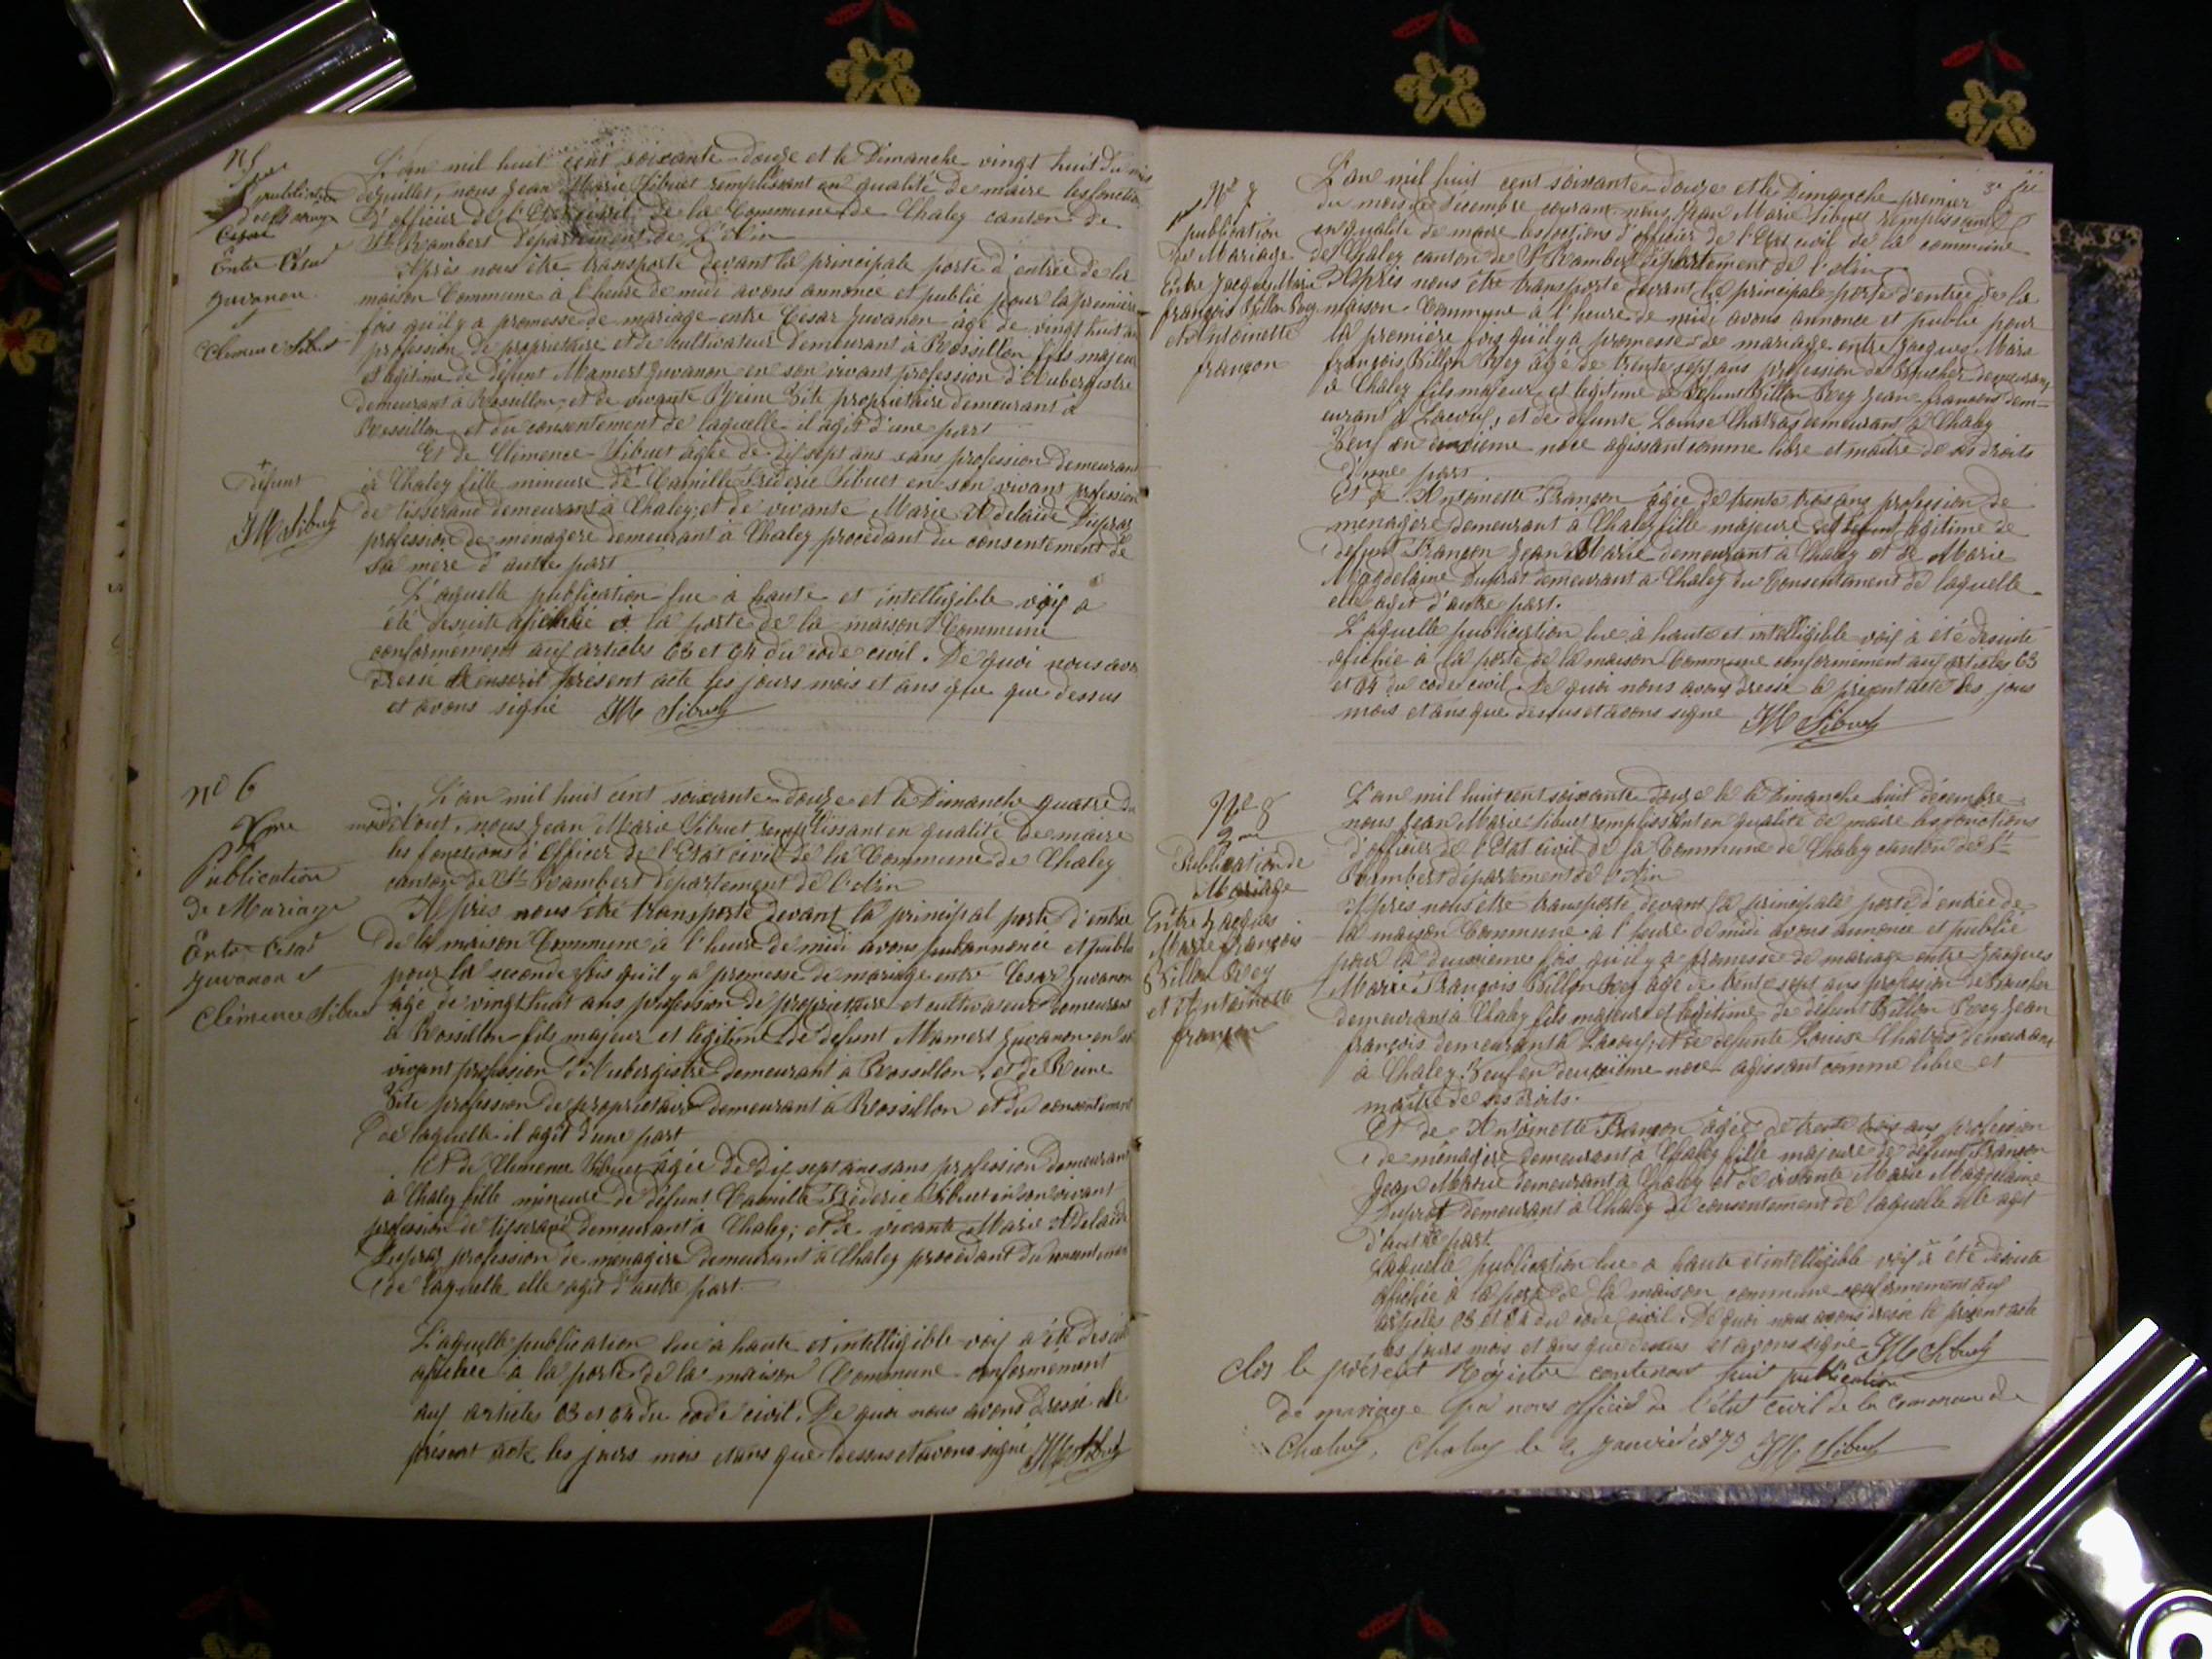 N 5
1ère publication
de Mariage
César
Entre César
Juvanon
et
Clémence Sibuet
L'an mil huit cent soixante-douze et le Dimanche vingt huit du mois
dejuillet, nous Jean Marie Sibuet remplissant en qualité de maire les fonctions
d'officier de l'Etat civil de la Commune de Chaley canton de
St Rambert département de L'Ain
Après nous être transporté devant la principale porte d'entrée de la
maison Commune à l'heure de midi avons annoncé et publié pour la première
fois qu'il y a promesse de mariage entre César Juvanon âgé de vingt huit ans
profession de propriétaire et de cultivateur demeurant à Rossillon fils majeur
et légitime de défunt Mamert Juvanon en son vivant profession d'Aubergistre
demeurant à Rossillon, et de vivante Reine Bite propriétaire demeurant à
Rossillon et du consentement de laquelle il agit d'une part
Et de Clémence Sibuet âgée de dix sept ans sans profession demeurant
+
défunt
JM Sibuet
à Chaley fille mineure de + Camille Fréderic Sibuet en son vivant profession
de tisserand demeurant à Chaley, et de vivante Marie Adelaide Dupraz
profession de ménagère demeurant à Chaley procédant du consentement de
sa mère d'autre part
L'aquelle publication lue à haute et intelligible voix a
été desuite affichée à la porte de la maison Commune
conformément aux articles 63 et 64 du code civil. De quoi nous avons
dressé présent acte les jours mois et ans que que dessus
et avons signé JM Sibuet
No 6
2me
Publication
de Mariage
Entre César
Juvanon et
Clémence Sibuet
L'an mil huit cent soixante-douze et le Dimanche quatre du
mois d'Aout, nous Jean Marie Sibuet remplissant en qualité de maire
les fonctions d'Officier de l'Etat civil de la Commune de Chaley
canton de St Rambert département de l'Ain
Après nous être transporté devant la principal porte d'entrée
de la maison Commune à l'heure de midi avons annoncé et publié
pour la seconde fois qu'il y a promesse de mariage entre César Juvanon
âgé de vingt huit ans profession de propriétaire et cultivateur demeurant
à Rossillon fils majeur et légitime de défunt Mamert Juvanon en son
vivant profession d'Aubergistre demeurant à Rossillon, et de Reine
Bite profession de propriétaire demeurant à Rossillon et du consentement
de laquelle il agit d'une part
Et de Clémence Sibuet âgée de dix sept ans sans profession demeurant
à Chaley fille mineure de défunt Camille Fréderic Sibuet en son vivant
profession de tisserand demeurant à Chaley; et de vivante Marie Adelaide
Dupraz profession de ménagère demeurant à Chaley procédant du consentement
de laquelle elle agit d'autre part.
L'aquelle publication lue à haute et intelligible voix a été desuite
affichée à la porte de la maison Commune conformément
aux articles 63 et 64 du code civil. De quoi nous avons dressé le
présent acte les jours mois et ans que dessus et avons signé JM Sibuet
No 7
1re publication
de Mariage
Entre Jacques Marie
françois Billon Rey
et Antoinette
françon
L'an mil huit cent soixante-douze et le Dimanche premier
du mois de décembre courant nous Jean Marie Sibuet remplissant
en qualité de maire les foctions d'officier de l'Etat civil de la commune
de Chaley canton de St Rambert département de l'Ain
Après nous être transporté devant la principale porte d'entrée de la
maison Commune à l'heure de midi avons annoncé et publié pour
la première fois qu'il y a promesse de mariage entre Jacques Marie
françois Billon Rey âgé de trente sept ans profession de demeurant
à Chaley fils majeur et légitime de défunt Billon Rey Jean-françois dem-
eurant à Lacoux, et de défunte Louise Chatras demeurant à Chaley
Veuf en deuxième noce agissant comme libre et maître de ses droits
d'une part
Et de Antoinette Françon âgée de trente trois ans profession de
ménagère demeurant à Chaley fille majeure et légitime de
défunt Françon Jean Marie demeurant à Chaley et de Marie
Magdelaine Dupraz demeurant à Chaley du Consentement de laquelle
elle agit d'autre part.
L'aquelle publication lue à haute et intelligible voix à été desuite
afichée à la porte de la maison Commune conformément aux articles 63
et 64 du code civil. De quoi nous avons dressé le présent acte les jours
mois et ans que dessus et avons signé JM Sibuet
No 8
2me
Publication de
Mariage
Entre Jacques
Marie François
Billon Rey
et Antoinette
françon
L'an mil huit cent soixante douze le le Dimanche huit décembre
nous Jean Marie Sibuet remplissant en qualité de maire les fonctions
d'officier de l'Etat civil de la Commune de Chaley canton de St
Rambert département de l'Ain
Après nous être transporté devant la principale porte d'entrée de
la maison Commune à l'heure de midi avons annoncé et publié
pour la deuxième fois qu'il y a promesse de mariage entre Jacques
Marie François Billon Rey âgé de trente sept ans profession de
demeurant à Chaley fils majeur et légitime de défunt Billon Rey Jean
françois demeurant à Lacoux, et de défunte Louise Chatras demeurant
à Chaley. Veuf en deuxième noce agissant comme libre et
maître de ses droits.
Et de Antoinette Françon âgée de trente trois ans profession
de ménagère demeurant à Chaley fille majeure de défunt Françon
Jean Marie demeurant à Chaley et de vivante Marie Magdelaine
Dupraz demeurant à Chaley du consentement de laquelle elle agit
d'autre part.
Laquelle publication lue a haute et intelligible voix à été desuite
afichée à la porte de la maison commune conformément aux
articles 63 et 64 du code civil. De quoi nous avons dressé le présent acte
les jours mois et ans que dessus et avons signé JM Sibuet
Clos le présent Régistre contenant huit publication
de mariage par nous officier de l'état civil de la Commune de
Chaley, Chaley le janvier 1873 JM Sibuet